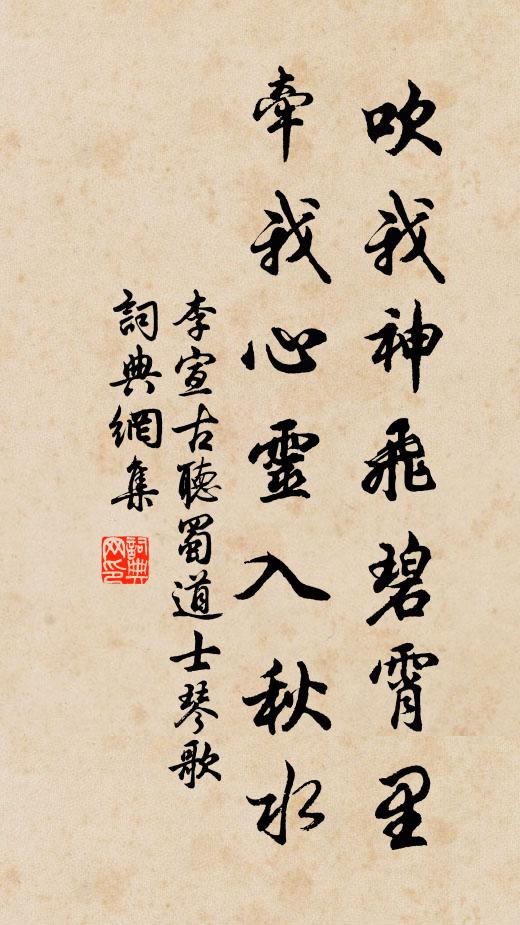 吹我神飛碧霄里
牽我心靈入秋水
李宣古聽蜀道士琴歌
詞典網集
詞典网印